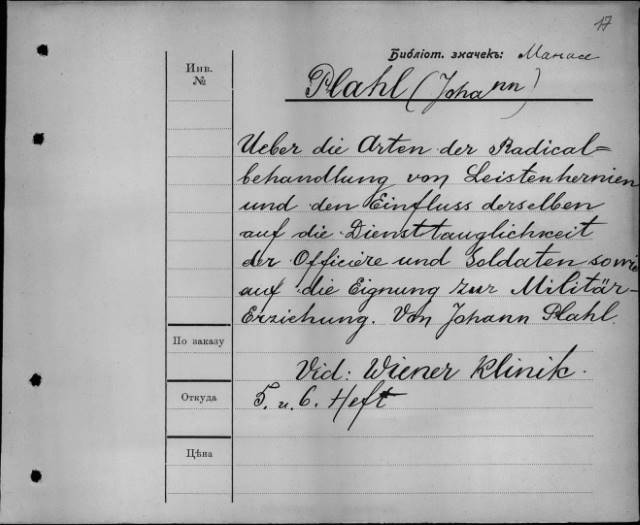 17
Библіот. значекъ:
Инв.
№
Plahl (Johann)
Ueber die Arten der Radical=
behandlung von Leistenhernien
und den Einfluss derselben
auf die Diensttauglichkeit
der Officiere und Soldaten sowie
auf die Eignung zur Militär-
Erziehung. Von Johann Plahl.
По заказу
Vid: Wiener Klinik.
Откуда
5. u. 6. Heft
Цѣна